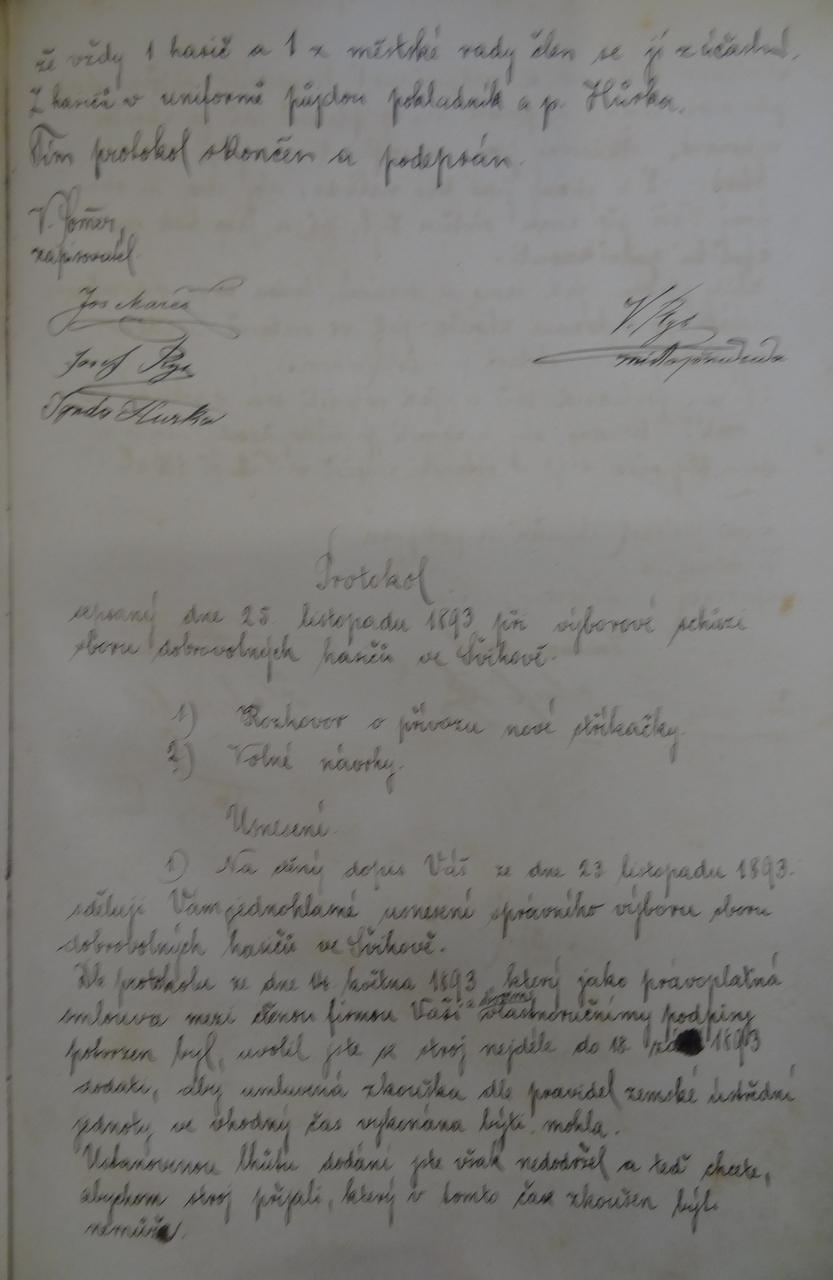 že vždy 1 hasič a 1 z městské rady člen se jí zúčastní.
Z hasičů v uniformě půjdou pokladník a p. Hůrka.
Tím protokol skončen a podepsán.
V. Pomer,
zapisovatel.
Jos Mareš
V. Rys
místopředseda
Josef Rys
Hurka
Protokol
sepsaný dne 25. listopadu 1893 při výborové schůzi
sboru dobrovolných hasičů ve Švihově.
1) Rozhovor o přívozu nové stříkačky.
2) Volné návrhy.
Usnesení.
1) Na ctěný dopis Váš ze dne 23 listopadu 1893.
sděluji Vám jednohlasné usnesení správního výboru sboru
dobrovolných hasičů ve Švihově.
Dle protokolu ze dne 14. května 1893, který jako právoplatná
smlouva mezi ctěnou firmou Vaší a vlastnoručnímy podpisy
potvrzen byl, uvolil jste se stroj nejdéle do 18. září 1893
dodati, aby umluvená zkouška dle pravidel zemské ústřední
jednoty, ve vhodný čas vykonána býti mohla.
Ustanovenou lhůtu dodání jste však nedodržel a teď chcete,
abychom stroj přijali, který v tomto čas zkoušen býti
nemůže.